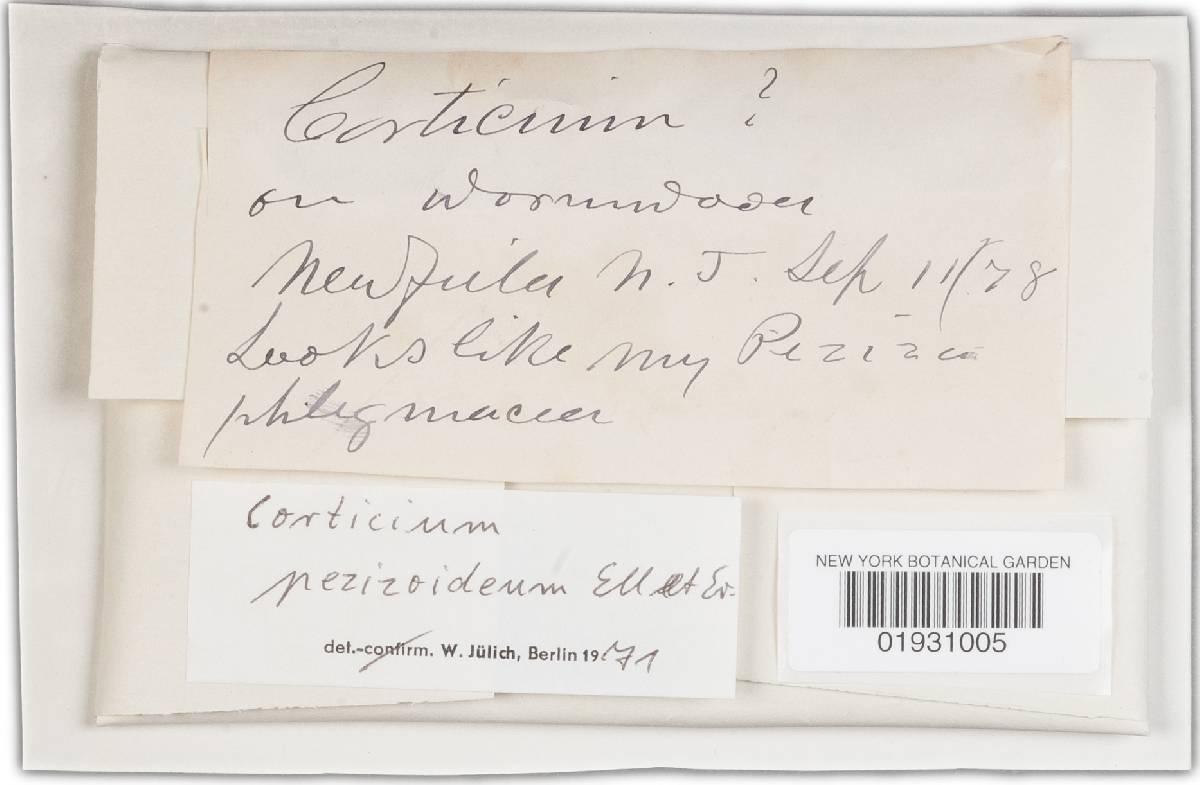 Corticium ?
on Wormwood
Newfield N. J. Sep 11/78
Looks like my Peziza
phlegmacea
Corticium
pezizoideum Ell et Ev.
det.-confirm. W. Jülich, Berlin 1971
NEW YORK BOTANICAL GARDEN
01931005